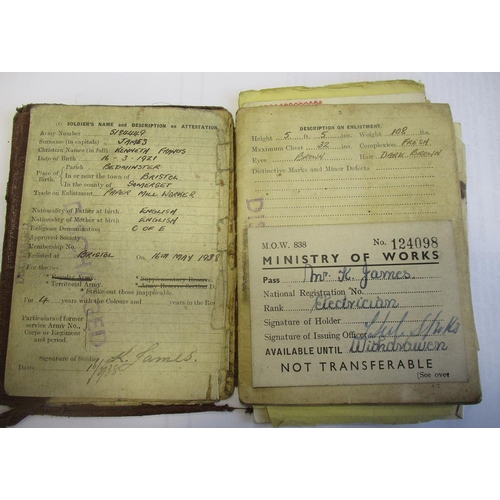 (1) SOLDIER'S NAME and DESCRIPTION on ATTESTATION.
Army Number 5184449
Surname (in capitals) JAMES
Christian Names (in full) KENNETH FRANCIS
Date of Birth 16-3-1921
Place of Birth. Parish BEDMINSTER
In or near the town of BRISTOL
In the county of SOMERSET
Trade on Enlistment PAPER MILL WORKER
Nationality of Father at birth. ENGLISH
Nationality of Mother at birth. ENGLISH
Religious Denomination C OF E
Approved Society
Membership No.
Enlisted at BRISTOL On 16TH MAY 1938
For the :—
Regular Army. Supplementary Reserve.
Territorial Army. Army Reserve Section D.
Strike out those inapplicable.
For 4 years with the Colours and years in the Res
Particulars of former service Army No., Corps or Regiment and period.
Signature of Soldier K. James
Date
DESCRIPTION ON ENLISTMENT.
Height 5 ft. 5 ins. Weight 108 lbs.
Maximum Chest 32 ins. Complexion FRESH
Eyes BROWN Hair DARK BROWN
Distinctive Marks and Minor Defects
M.O.W. 838 No. 124098
MINISTRY OF WORKS
Pass Mr K. James
National Registration No.
Rank Electrician
Signature of Holder
Signature of Issuing Officer
AVAILABLE UNTIL Withdrawn
NOT TRANSFERABLE
(See over